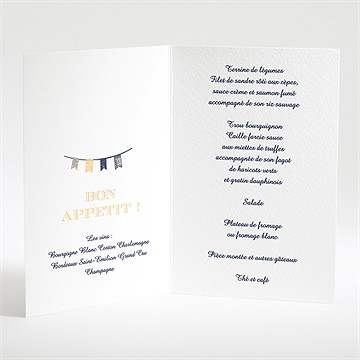 BON
APPETIT !
Les vins :
Bourgogne Blanc Corton Charlemagne
Bordeaux Saint-Emilion Grand Cru
Champagne
Terrine de légumes
Filet de sandre rôti aux cèpes,
sauce crème et saumon fumé
accompagné de son riz sauvage
Trou bourguignon
Caille farcie sauce
aux miettes de truffes
accompagnée de son fagot
de haricots verts
et gratin dauphinois
Salade
Plateau de fromage
ou fromage blanc
Pièce montée et autres gâteaux
Thé et café